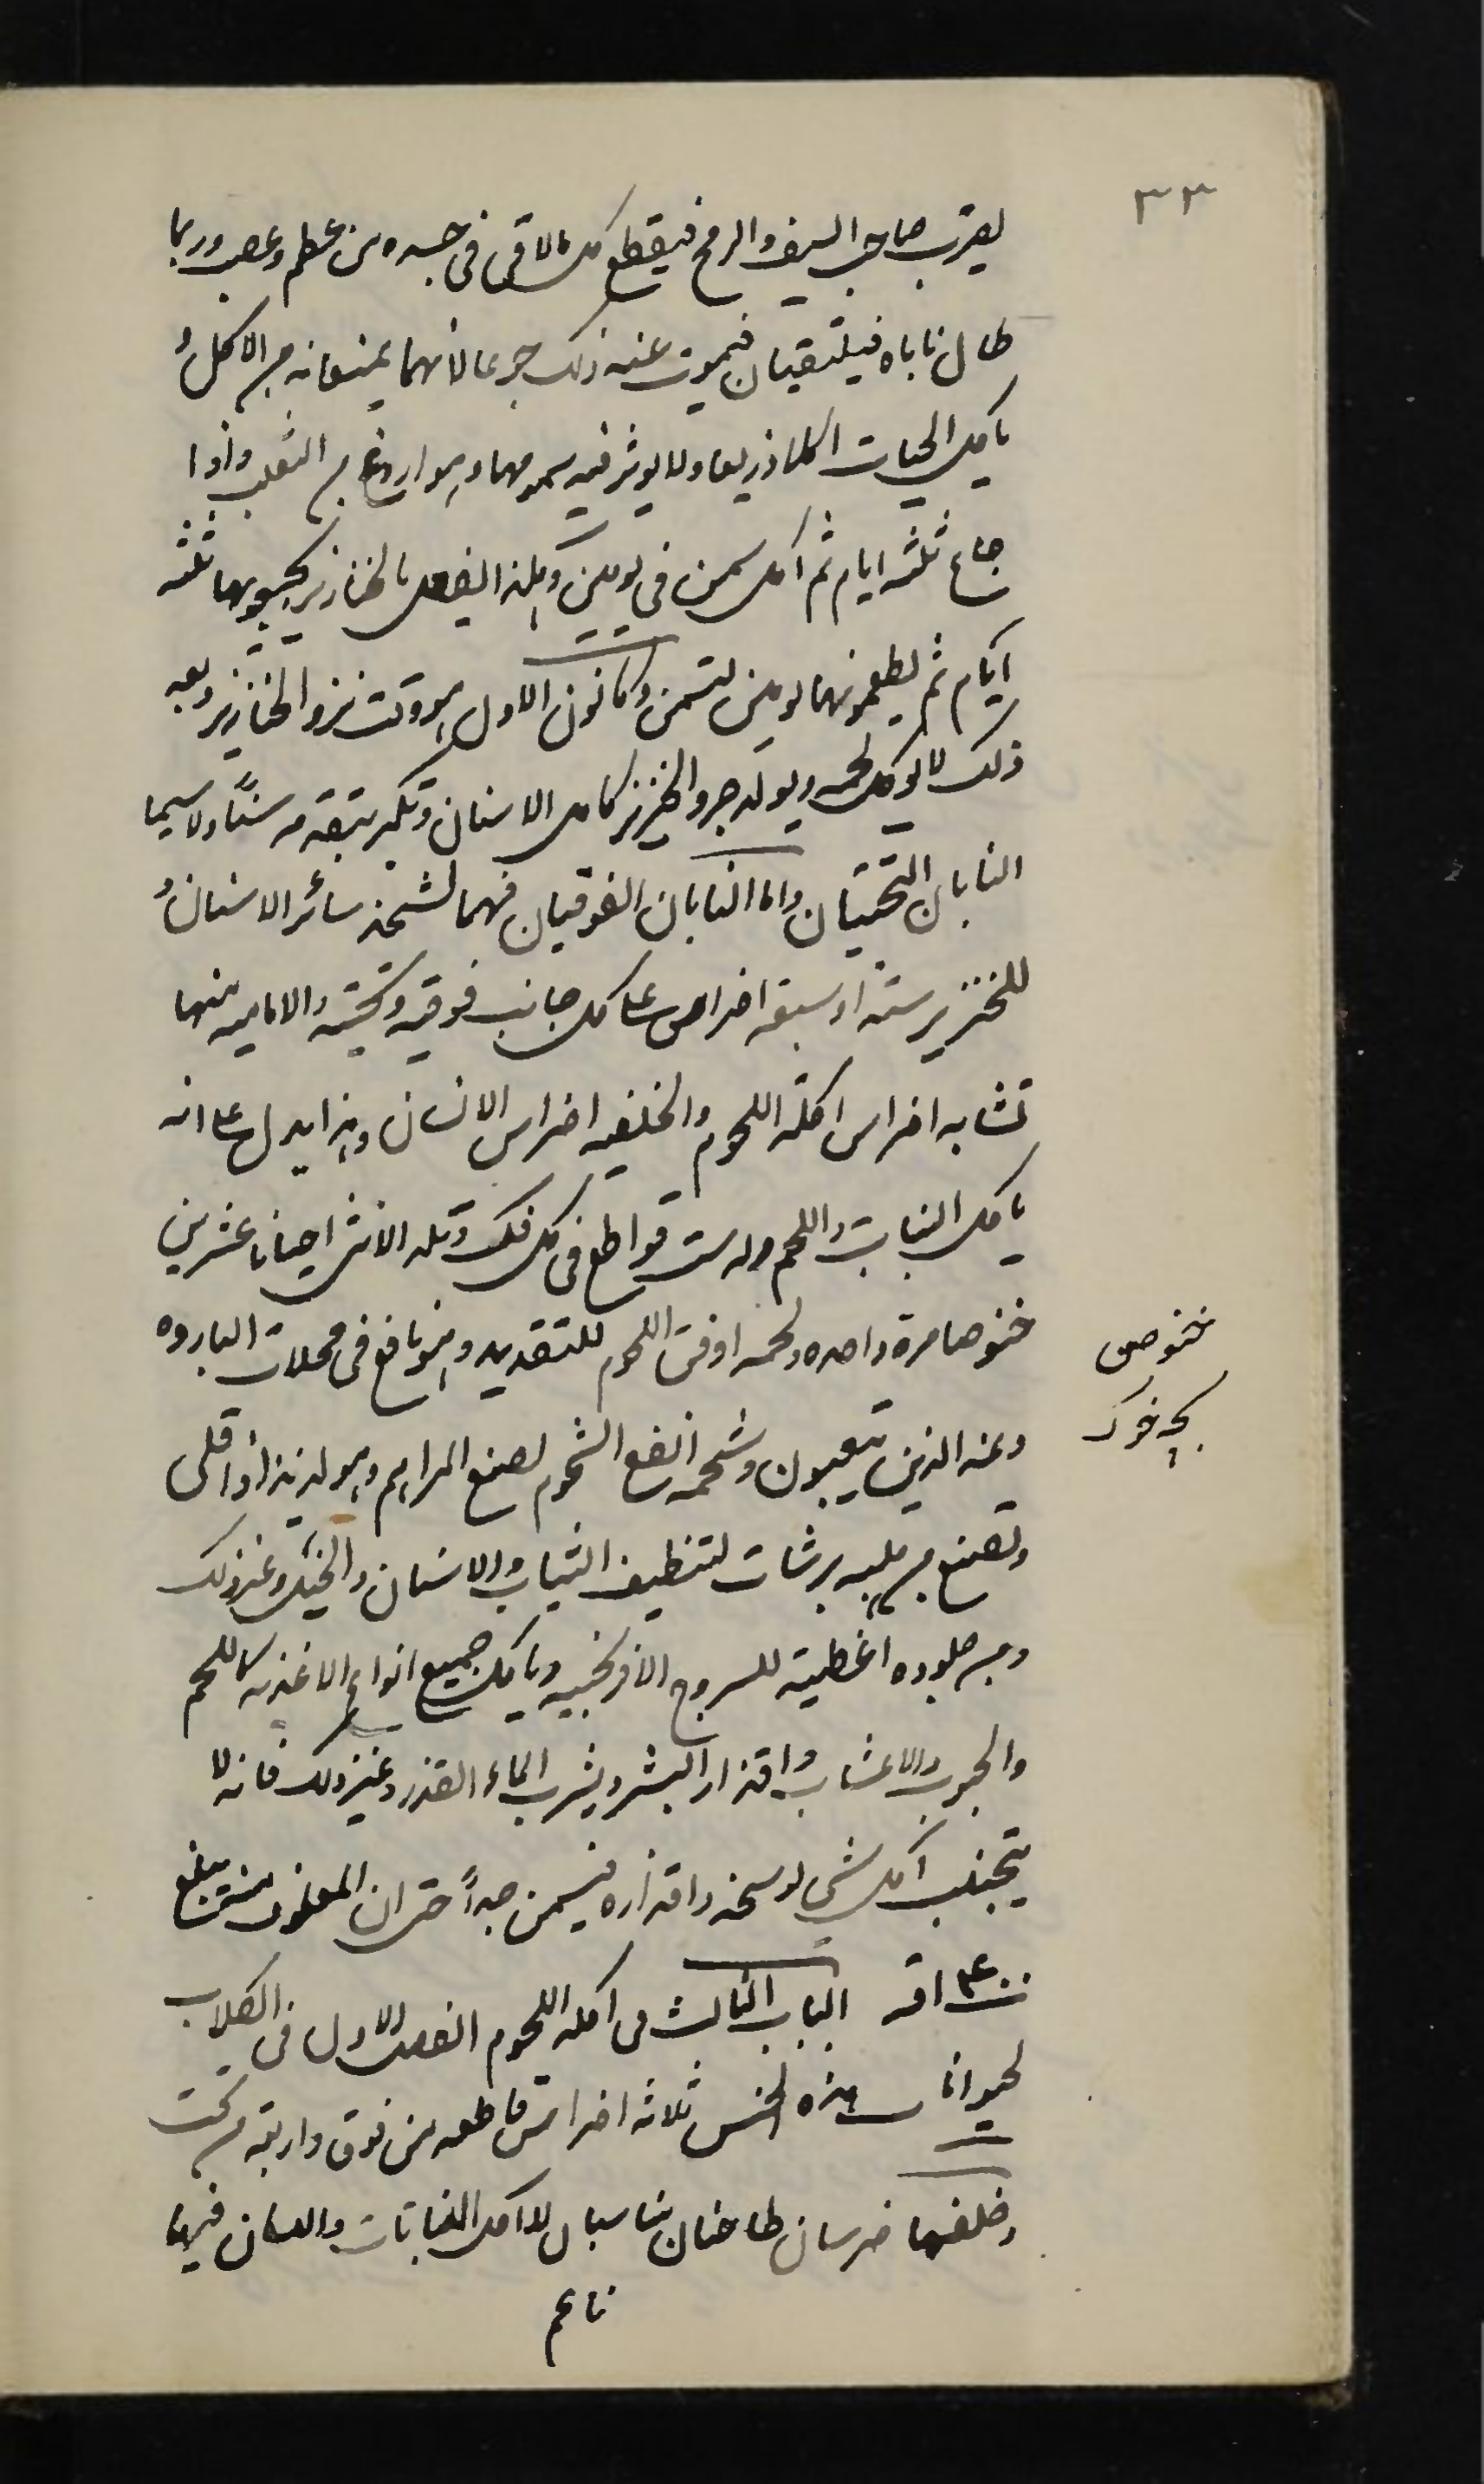 ٣٣
يضرب صاحب السيف والرمح فيقطع كل ما لاقى فى جسده من عظم وعصب وربما
طال ناباه فيلتقيان فيموت عند ذلك جوعا لانهما يمنعانه من الاكل و
يأكل الحيات اكلا ذريعا ولا يوثر فيه سمومها وهو اروغ من الثعلب واذا
جاع ثلثه ايام ثم اكل سمن فى يومين وهكذا يفعل بالخنازير يجيعونها ثلثه
ايام ثم يطعمونها يومين لتسمن وكانون الاول هو وقت نزو الخنازير وبعد
ذلك لا يوكل لحمه ويولد جرو الخنزير كامل الاسنان وتكبر بتقدمه سنًّا ولا سيما
النابان التحتيان واما النابان الفوقيان فهما لشحذ سائر الاسنان و
للخنزير سته او سبعة اضراس على كل جانب فوقيه وتحتيه والاماميه منها
تشابه اضراس اكلة اللحوم والخلفيه اضراس الانسان وهذا يدل على انه
يأكل النبات واللحم وله ست قواطع فى كل فك وتلد الانثى احيانا عشرين
خنوصا مرة واحده ولحمه اوفق اللحوم للتقديد وهو نافع فى محلات البارده
وعند الذين يتعبون وشحمه انفع الشحوم لصنع المراهم وهو لذيذ اذا قلى
وتصنع من هلبه برشات لتنظيف الثياب والاسنان والخيل وغير ذلك
ومن جلوده اغطية للسروج الافرنجيه ويأكل جميع انواع الاغذيه كاللحم
والحبوب والاعشاب واقذار البشر ويشرب الماء القذر وغير ذلك فانه لا
يتجنب اكل شى لوسخه واقذاره فيسمن جداً حتى ان المعلوف منه يبلغ
٤٠٠ اقه الباب الثالث فى اكله اللحوم الفصل الاول فى الكلاب
لحيوانات هذه الجنس ثلاثه اضراس قاطعه من فوق واربعة من تحت
وخلفها ضرسان طاحنان يناسبان لاكل النباتات واللسان فيها
ناعم
خنوص
بچه خوک